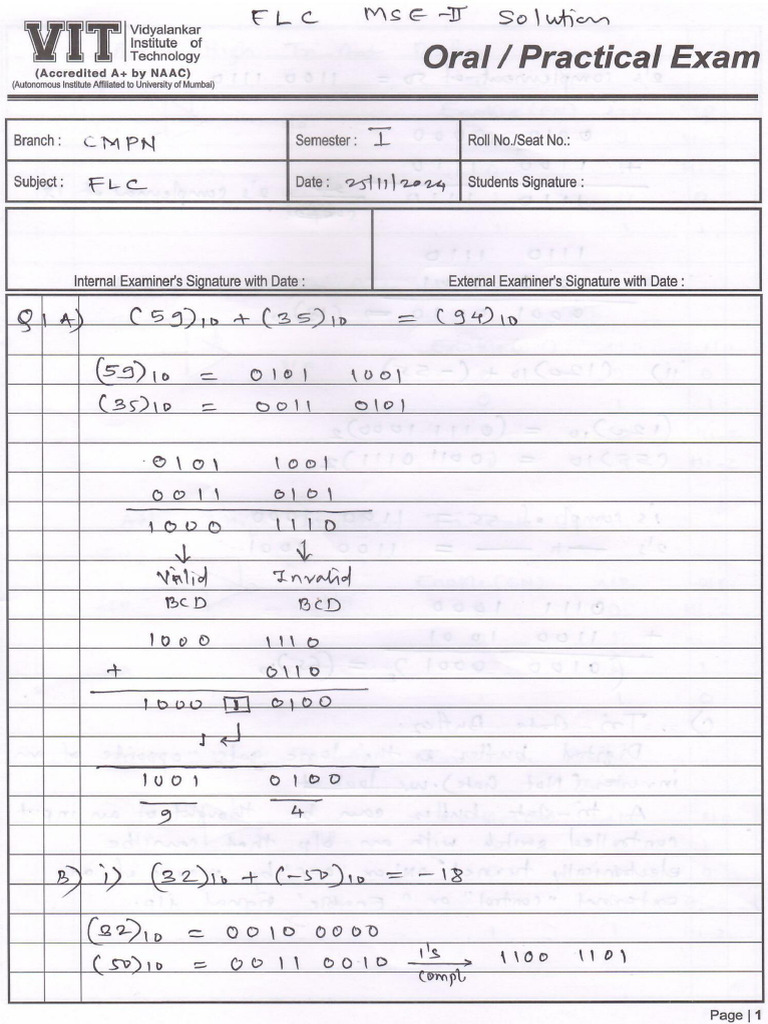 FLC MSE-II Solution
VIT Vidyalankar Institute of Technology
(Accredited A+ by NAAC)
(Autonomous Institute Affiliated to University of Mumbai)
Oral / Practical Exam
Branch : CMPN Semester : I Roll No./Seat No.:
Subject : FLC Date : 25/11/2024 Students Signature :
Internal Examiner's Signature with Date : External Examiner's Signature with Date :
Q1 A) (59)10 + (35)10 = (94)10
(59)10 = 0101 1001
(35)10 = 0011 0101
0101 1001
0011 0101
1000 1110
↓ ↓
Valid Invalid
BCD BCD
1000 1110
+ 0110
1000 1 0100
1 ↵
1001 0100
9 4
B) i) (32)10 + (-50)10 = -18
(32)10 = 0010 0000
(50)10 = 0011 0010 1's compl → 1100 1101
Page | 1